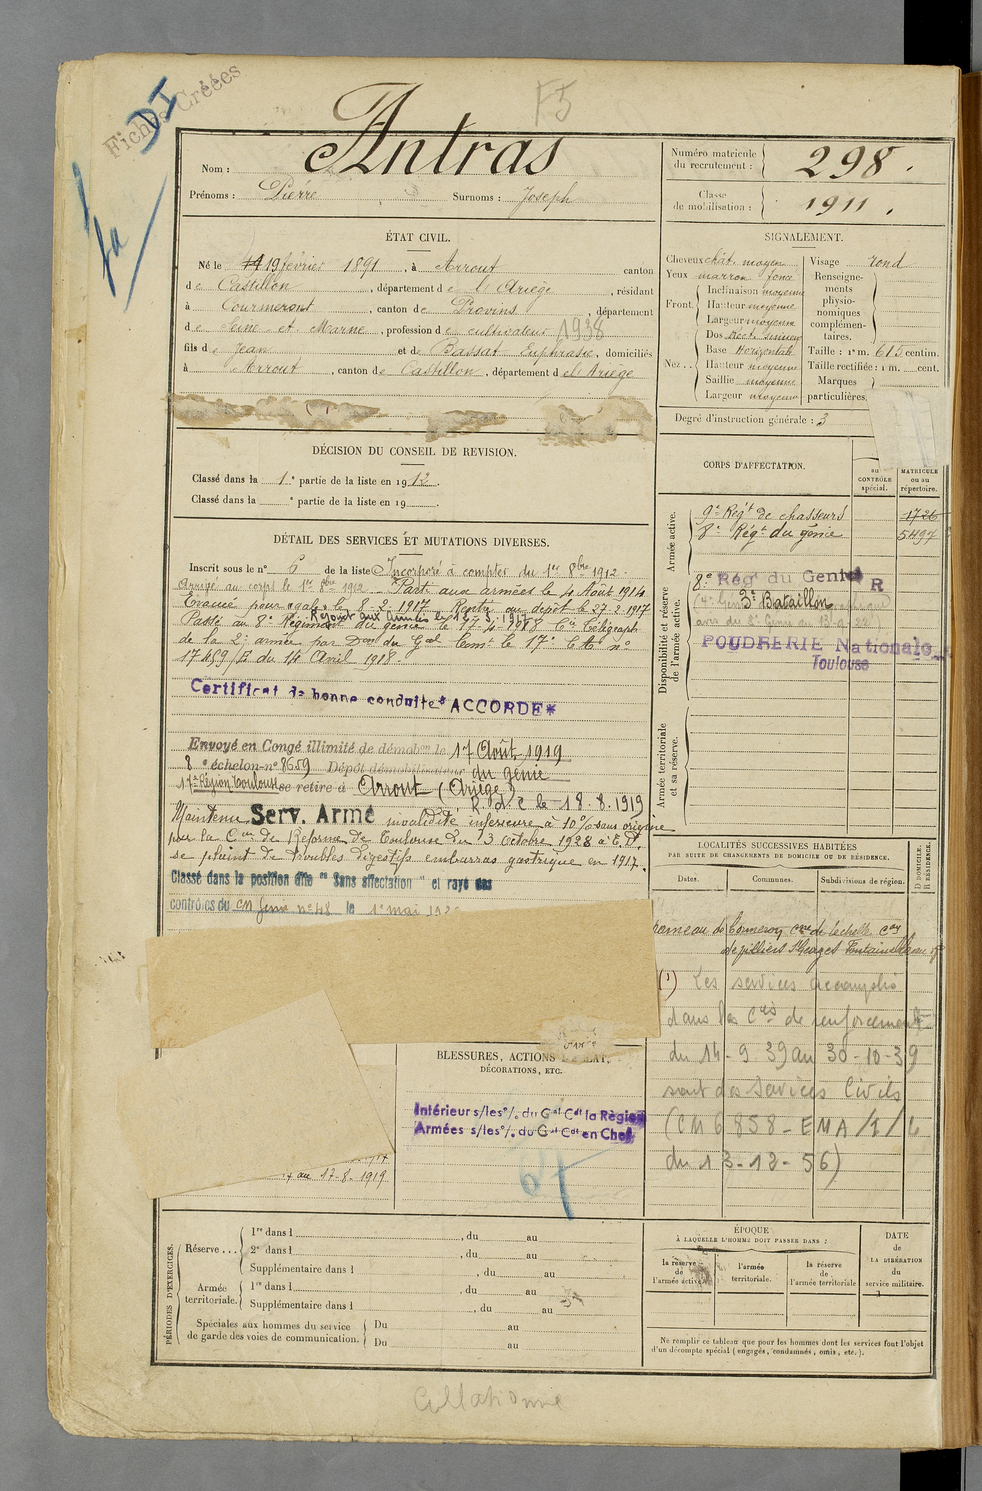 Fiches Créées
DI
F5
fa
Nom : Antras
Prénoms : Pierre Surnoms : Joseph
Numéro matricule du recrutement : 298.
Classe de mobilisation : 1911.
ÉTAT CIVIL.
Né le 14 19 février 1891, à Arrout canton
de Castillon, département de l'Ariège, résidant
à Courmeront, canton de Provins, département
de Seine et Marne, profession de cultivateur 1938
fils de Jean et de Bassat Euphrasie, domiciliés
à Arrout, canton de Castillon, département de l'Ariège
SIGNALEMENT.
Cheveux chât. moyen
Yeux marron foncé
Front. Inclinaison moyenne
Hauteur moyenne
Largeur moyenne
Nez.. Dos Rect. sinueux
Base Horizontale
Hauteur moyenne
Saillie moyenne
Largeur moyenne
Visage rond
Renseignements physionomiques complémentaires.
Taille : 1 m. 615 centim.
Taille rectifiée : 1 m. cent.
Marques particulières.
Degré d'instruction générale : 3
DÉCISION DU CONSEIL DE REVISION.
Classé dans la 1e partie de la liste en 1912.
Classé dans la e partie de la liste en 19
DÉTAIL DES SERVICES ET MUTATIONS DIVERSES.
Inscrit sous le n° 6 de la liste Incorporé à compter du 1er 8bre 1912.
Arrivé au corps le 1er 8bre 1912. Parti aux armées le 4 Août 1914
Evacué pour "gale" le 8-2-1917 Rentré au dépôt le 27-2-1917
Rejoint aux Armées le 17.3.1917
Passé au 8e Régiment du génie le 17-4-1918 Cie Télégraph
de la 2e armée par Don du Gal Comt le 17e CA n°
17459/E du 14 Avril 1918.
Certificat de bonne conduite *ACCORDE*
Envoyé en Congé illimité de démobon le 17 Août 1919
8e échelon n° 8659 Dépôt démobilisateur du génie
17e Région Toulouse se retire à Arrout (Ariège)
R.d.C le 18.8.1919
Maintenu Serv. Armé invalidité inférieure à 10% sans origine
par la Con de Réforme de Toulouse du 3 octobre 1928
se plaint de troubles digestifs embarras gastrique en 1917.
Classé dans la position dite "Sans affectation" et rayé des
contrôles du CM Génie n° 48 le 1er mai
CORPS D'AFFECTATION.
au CONTRÔLE spécial.
MATRICULE ou au répertoire.
Armée active.
9e Régt de chasseurs 1726
8e Régt du génie 5497
Disponibilité et réserve de l'armée active.
8e Rég du Génie R
3e Bataillon
avis du 8e Génie du 13-9-22)
POUDRERIE Nationale
Toulouse
Armée territoriale et sa réserve.
LOCALITÉS SUCCESSIVES HABITÉES
PAR SUITE DE CHANGEMENTS DE DOMICILE OU DE RÉSIDENCE.
Dates. Communes. Subdivisions de région. D DOMICILE. R RÉSIDENCE.
hameau de Cormeron cne de Lechelle con
de Villiers St Georges Fontainebleau
(1) Les services accomplis
dans les Cies de renforcement
du 14-9-39 au 30-10-39
sont des Services Civils
(CM 6858-EMA/1/L
du 13-12-56)
BLESSURES, ACTIONS D'ÉCLAT,
DÉCORATIONS, ETC.
Intérieur s/les o/. du Gal Cdt la Région
Armées s/les o/. du Gal Cdt en Chef
au 17-8-1919
PÉRIODES D'EXERCICES.
Réserve ... 1re dans l , du au
2e dans l , du au
Supplémentaire dans l , du au
Armée territoriale. 1re dans l , du au
Supplémentaire dans l , du au
Spéciales aux hommes du service de garde des voies de communication. Du au
Du au
ÉPOQUE
À LAQUELLE L'HOMME DOIT PASSER DANS :
la réserve de l'armée active
l'armée territoriale.
la réserve de l'armée territoriale
DATE de LA LIBÉRATION du service militaire.
Ne remplir ce tableau que pour les hommes dont les services font l'objet
d'un décompte spécial (engagés, condamnés, omis, etc.).
Collationné